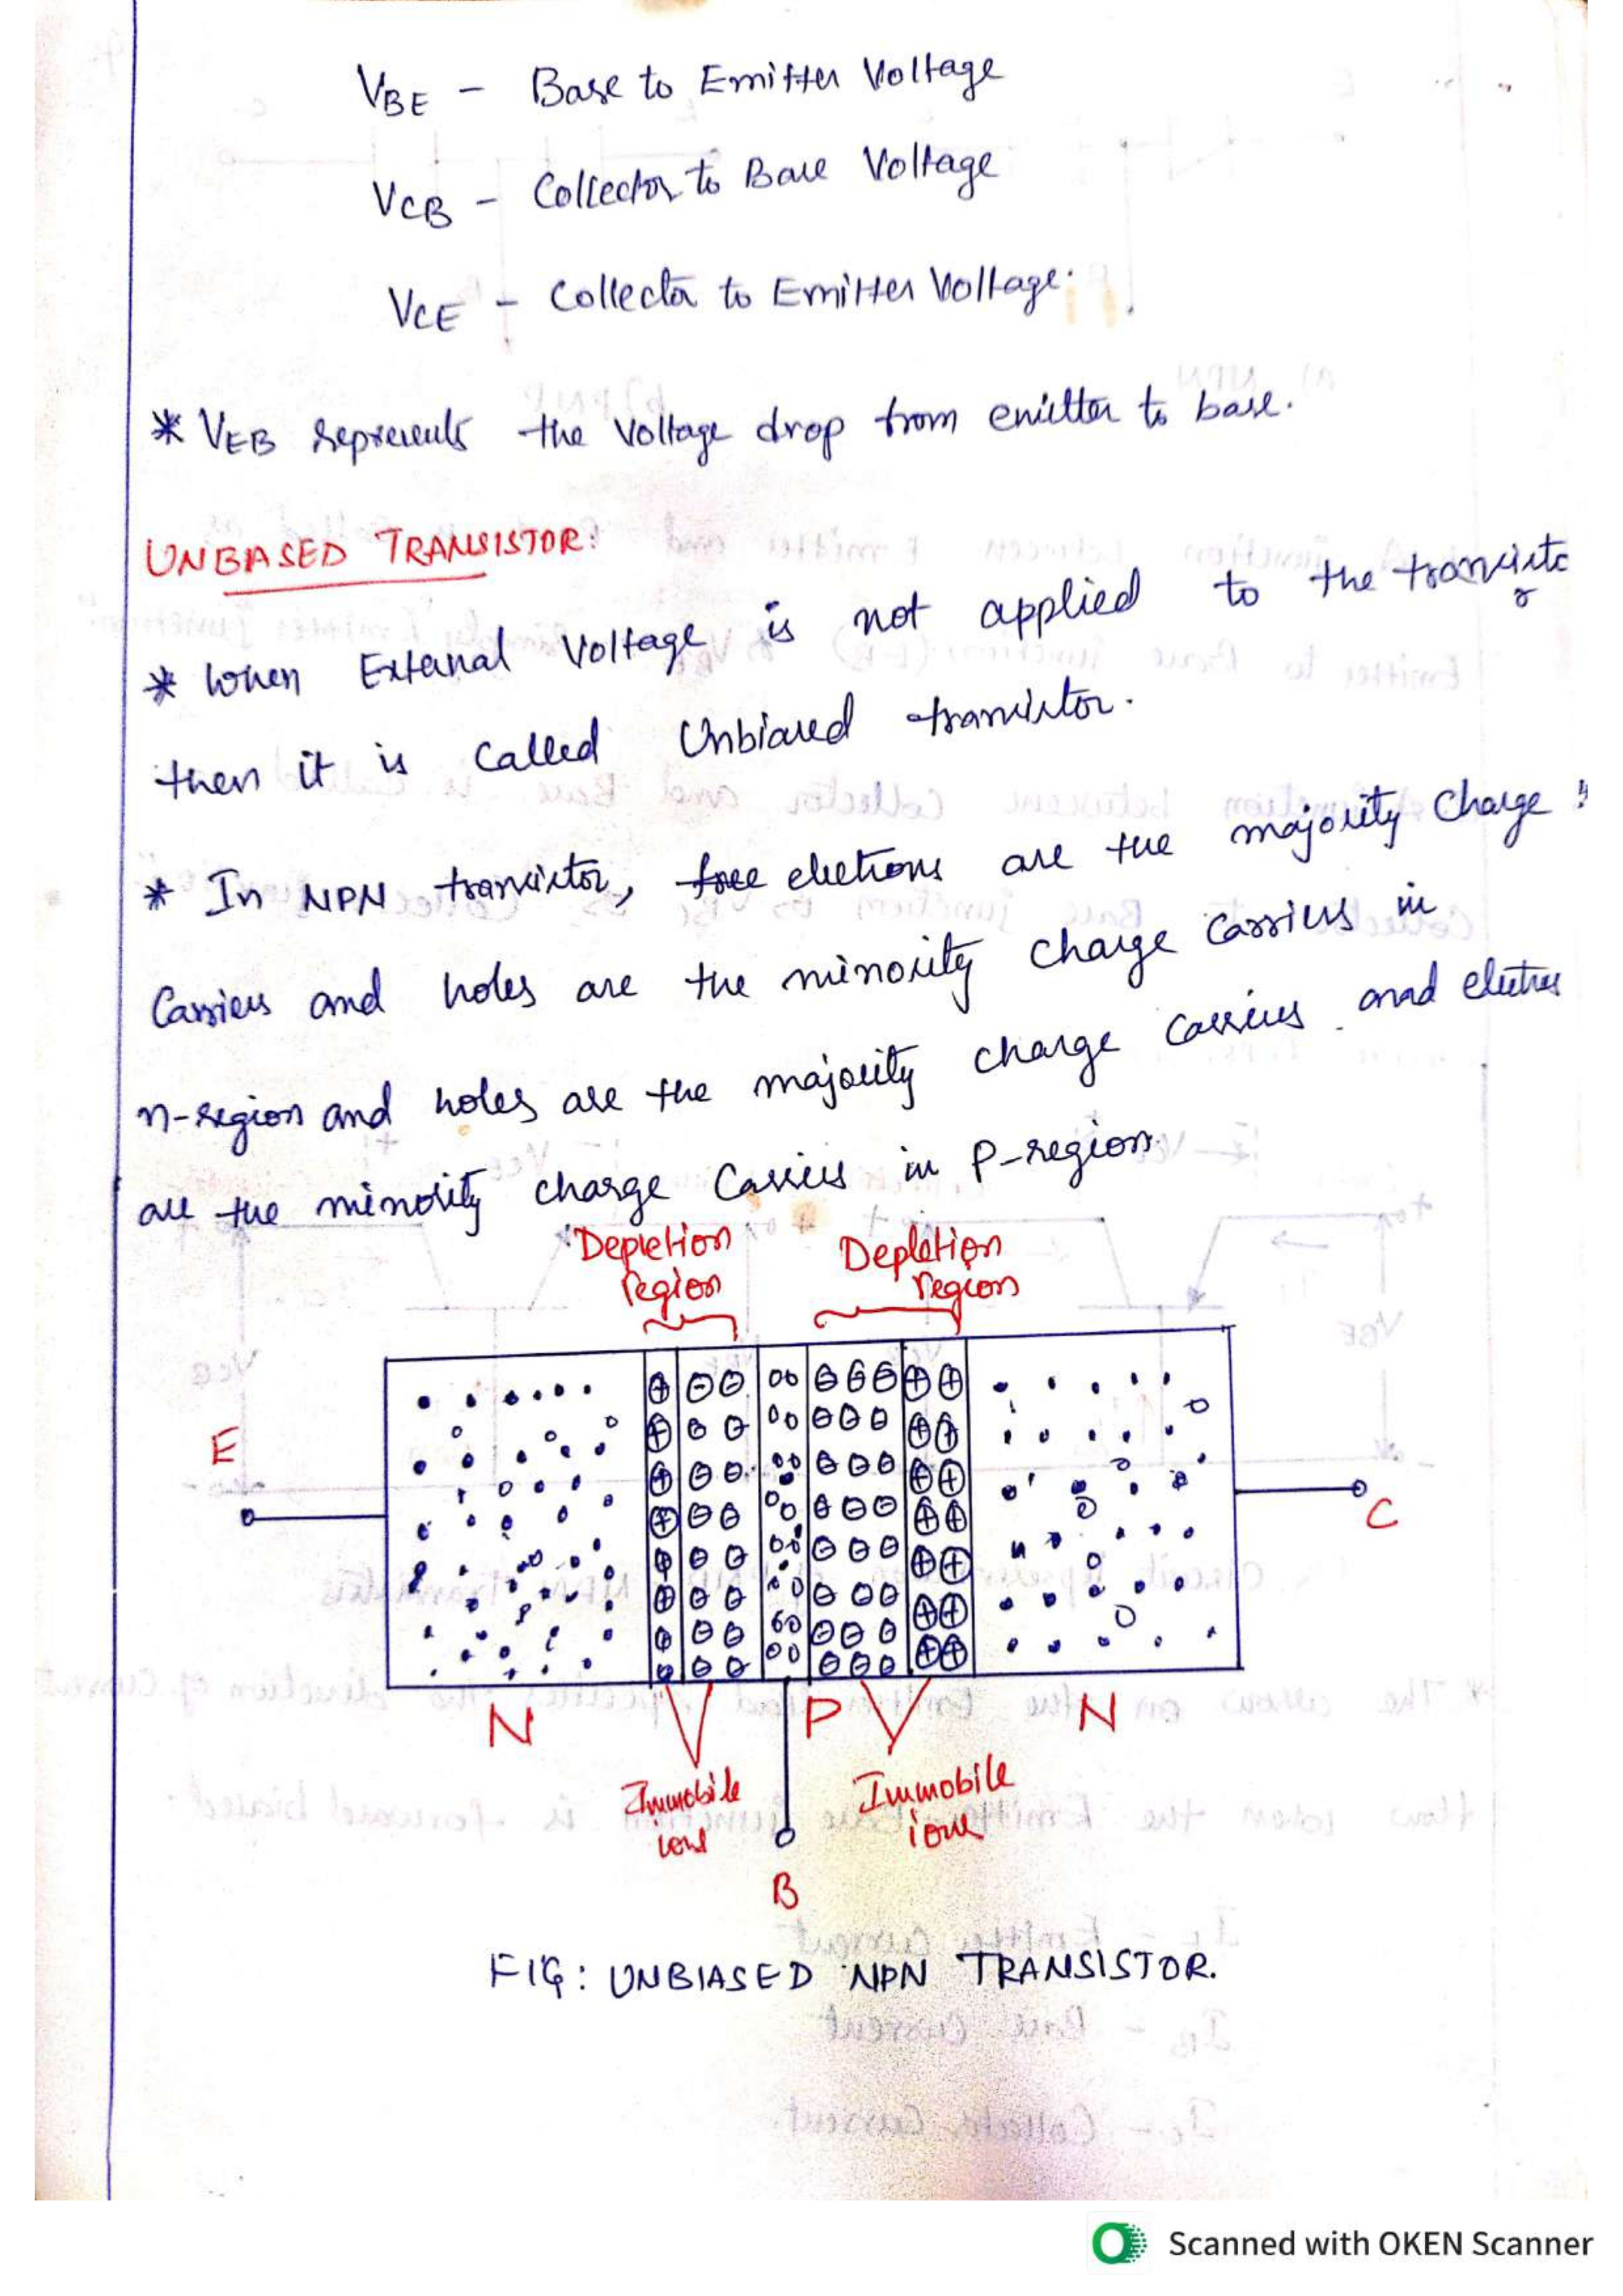 VBE - Base to Emitter Voltage
VCB - Collector to Base Voltage
VCE - Collector to Emitter Voltage.
* VEB represents the Voltage drop from emitter to base.
UNBASED TRANSISTOR:
* When External Voltage is not applied to the transistor
then it is Called Unbiased transistor.
* In NPN transistor, free electrons are the majority Charge
Carriers and holes are the minority charge Carriers in
n-region and holes are the majority charge Carriers and electrons
are the minority charge Carriers in P-region.
Depletion region
Depletion region
E
C
N
P
N
Immobile ions
Immobile ions
B
FIG: UNBIASED NPN TRANSISTOR.
Scanned with OKEN Scanner